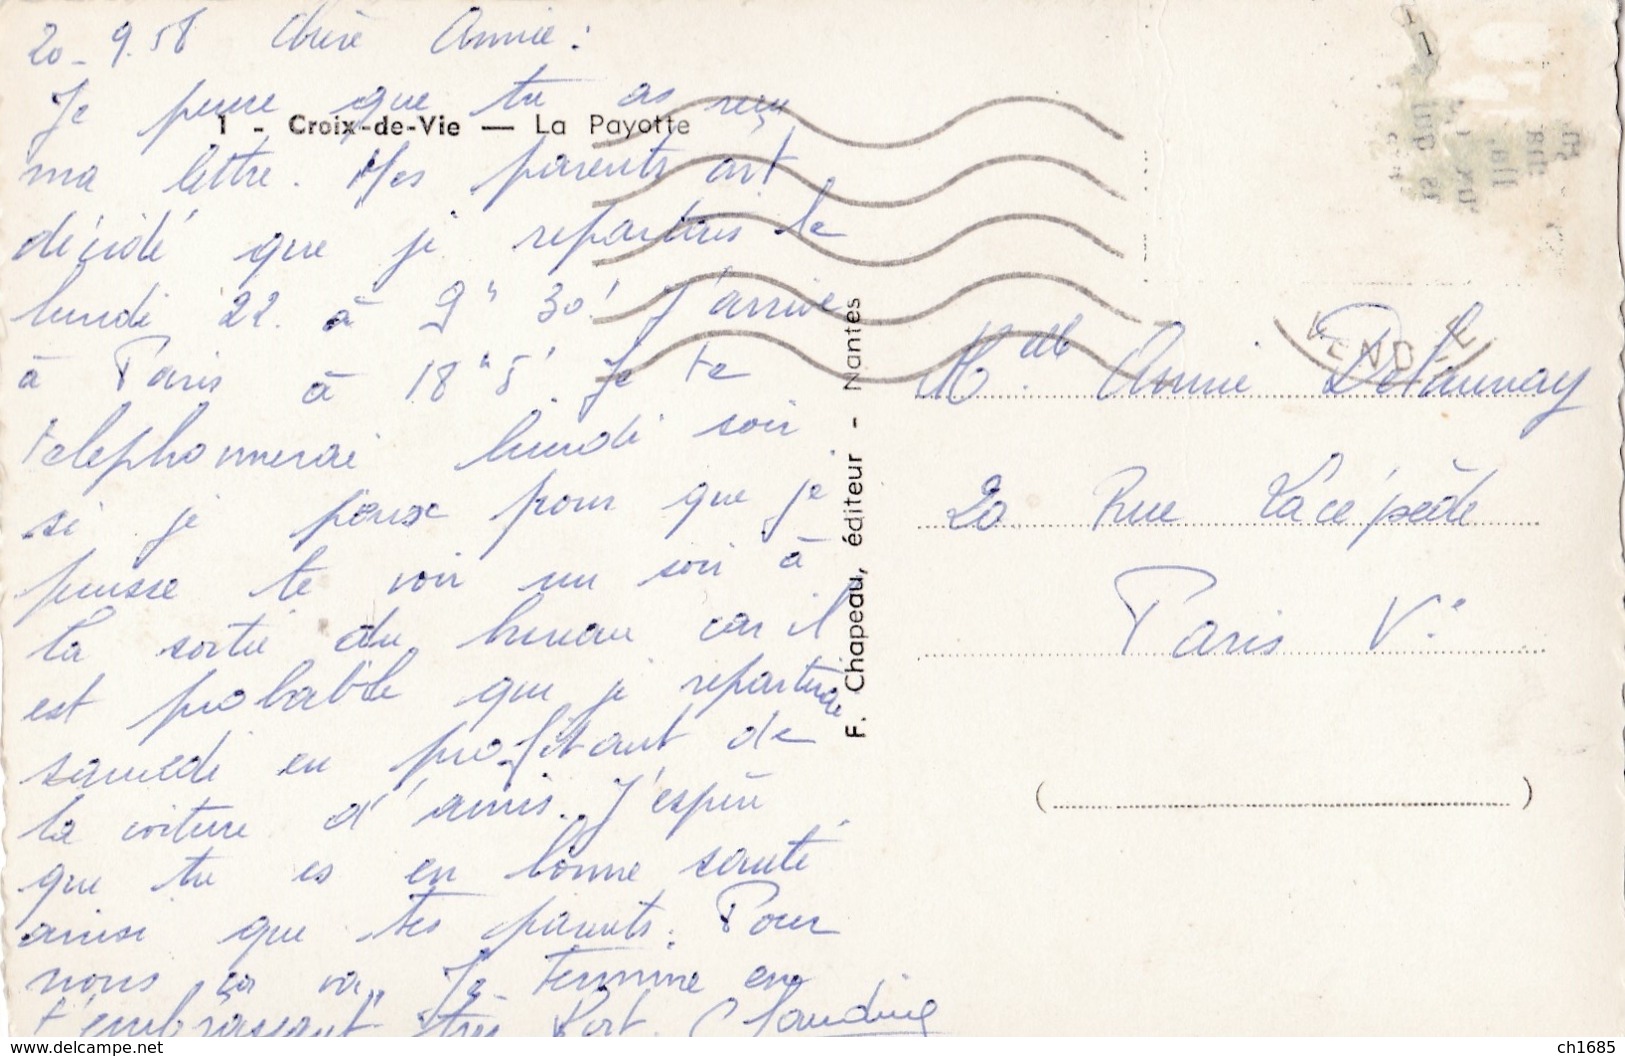 20-9.58 Chère Annie :
Je pense que tu as reçu
1 - Croix-de-Vie — La Payotte
ma lettre. Mes parents ont
décidé que je repartais le
lundi 22. à 9h 30! J'arrive
à Paris à 18h 5'. Je te
telephonnerai lundi soir
si je peux pour que je
puisse te voir un soir à
la sortie du bureau car il
est probable que je repartirai
samedi en profitant de
la voiture d'amis. J'espère
que tu es en bonne santé
ainsi que tes parents. Pour
nous ça va. Je termine en
t'embrassant très fort. Claudine
F. Chapeau, éditeur - Nantes
VENDEE
Melle Annie Delaunay
20 Rue Lacépède
Paris Ve
ch1685.delcampe.net
ch1685